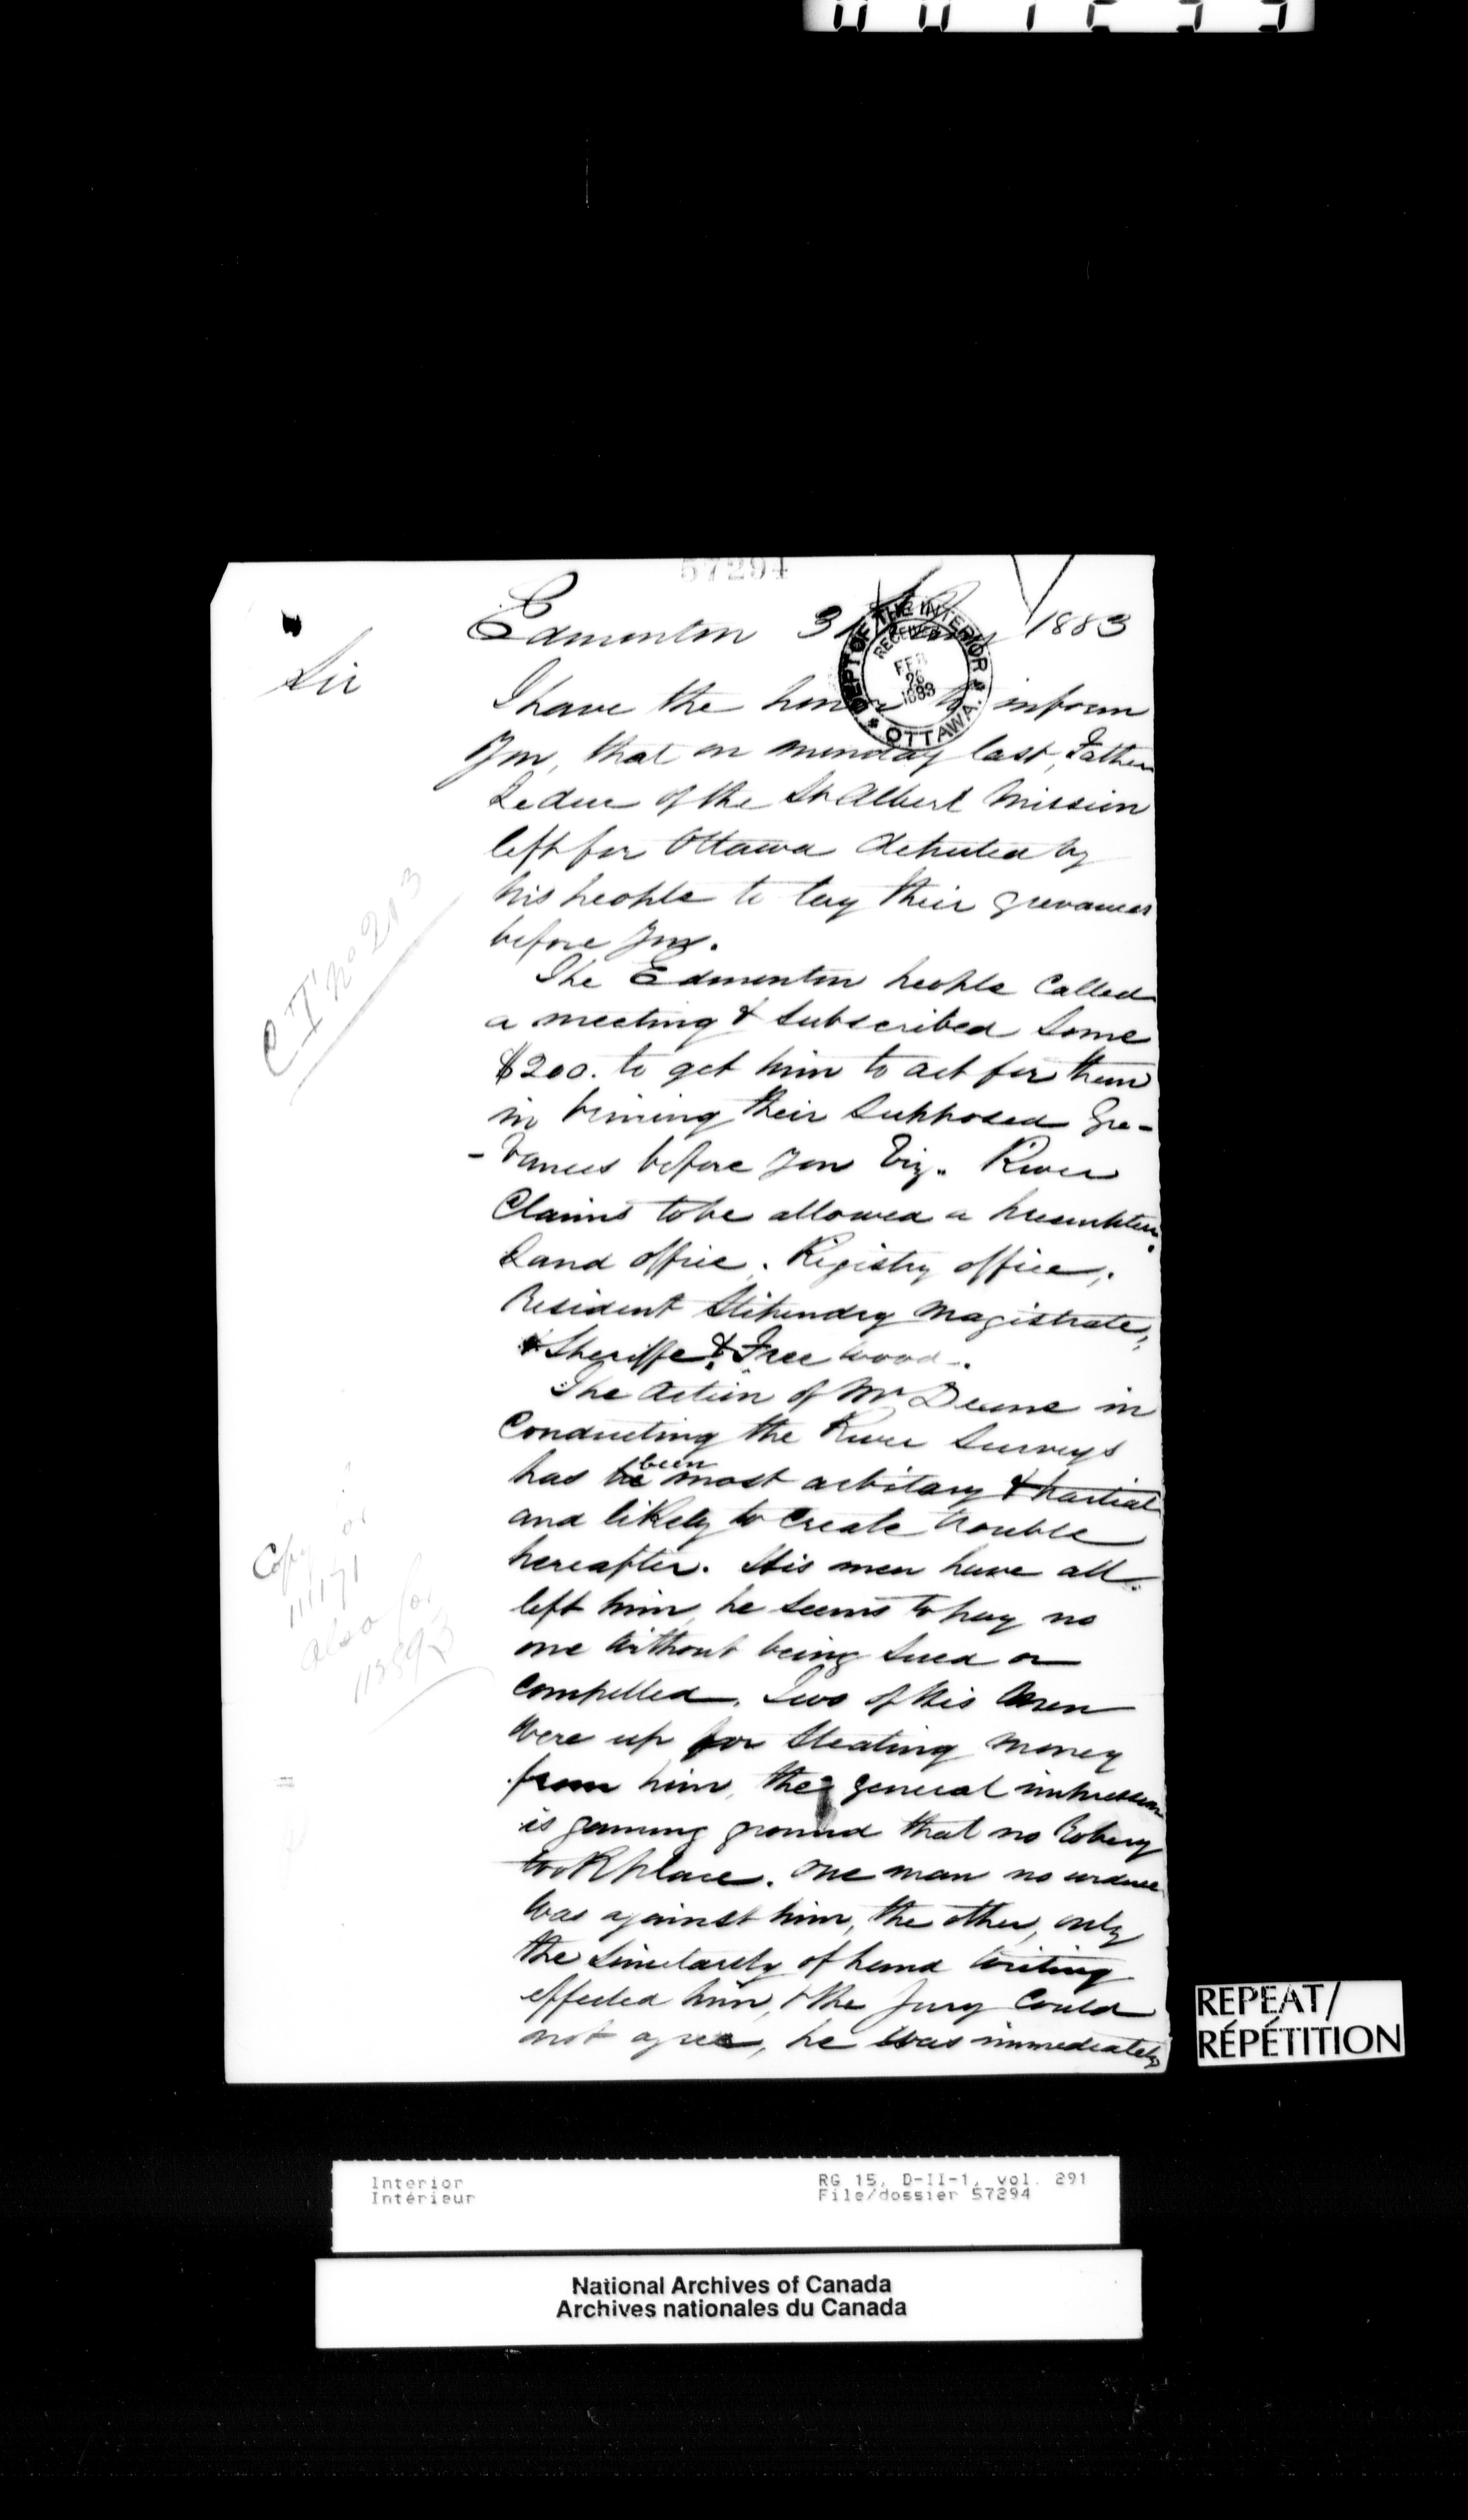 57294
Edmonton 31 1883
DEPT OF THE INTERIOR
RECEIVED
FEB
26
1883
OTTAWA.
Sir
I have the honor to inform
you, that on monday last, Father
Leduc of the St Albert Mission
left for Ottawa deputed by
his people to lay their grevances
before you.
C I No 213
The Edmonton people called
a meeting & subscribed some
$200. to get him to act for them
in brining their supposed Gre-
-vances before you Viz. River
Claims to be allowed a preemption.
Land office. Registry office,
Resident Stipendry magistrate,
& Sheriffe & Free wood.
The action of Mr Deane in
Conducting the River Surveys
has been most arbitary & partial
and likely to create trouble
hereafter. His men have all
left him, he seems to pay no
one without being sued or
compelled. Two of his men
were up for stealing money
from him, the general impression
is gaining ground that no robery
took place. One man no evidence
was against him, the other, only
the similarity of hand writing
effected him, & the Jury could
not agree, he was immediately
Copy
111171
also for
REPEAT/
RÉPÉTITION
Interior
Intérieur
RG 15, D-II-1, vol. 291
File/dossier 57294
National Archives of Canada
Archives nationales du Canada